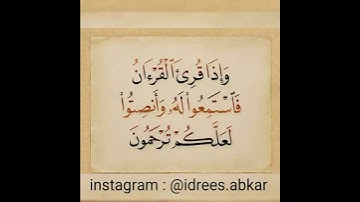 وَإِذَا قُرِئَ ٱلْقُرْءَانُ
فَٱسْتَمِعُوا۟ لَهُۥ وَأَنصِتُوا۟
لَعَلَّكُمْ تُرْحَمُونَ
instagram : @idrees.abkar